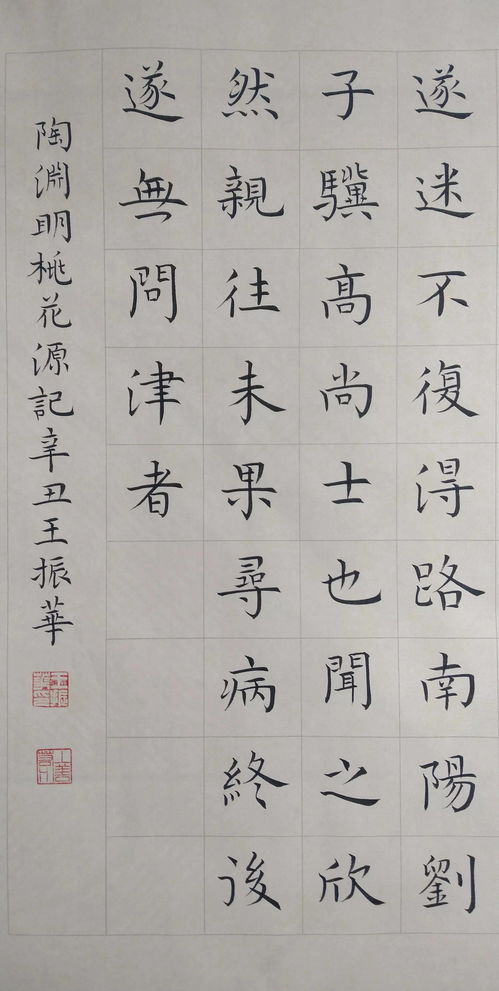 遂迷不復得路南陽劉
子驥高尚士也聞之欣
然親往未果尋病終後
遂無問津者
陶淵明桃花源記辛丑王振華